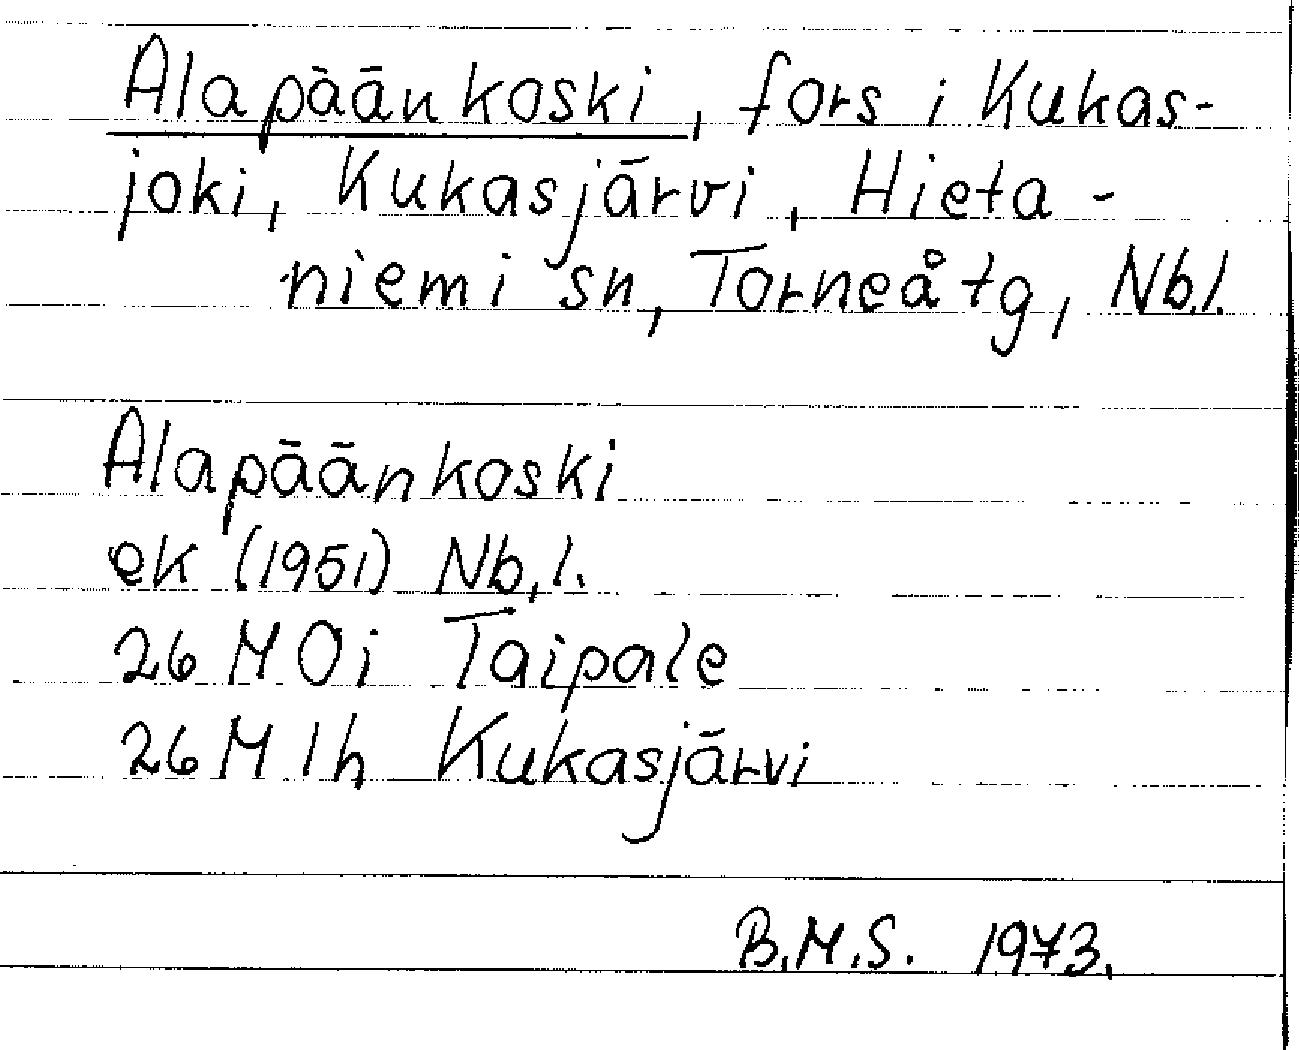 Alapäänkoski, fors i Kukas-
joki, Kukasjärvi, Hieta-
niemi sn, Torneå tg, Nb.l.
Alapäänkoski
ek (1951) Nb.l.
26 M 0i Taipale
26 M 1h Kukasjärvi
B.M.S. 1973.